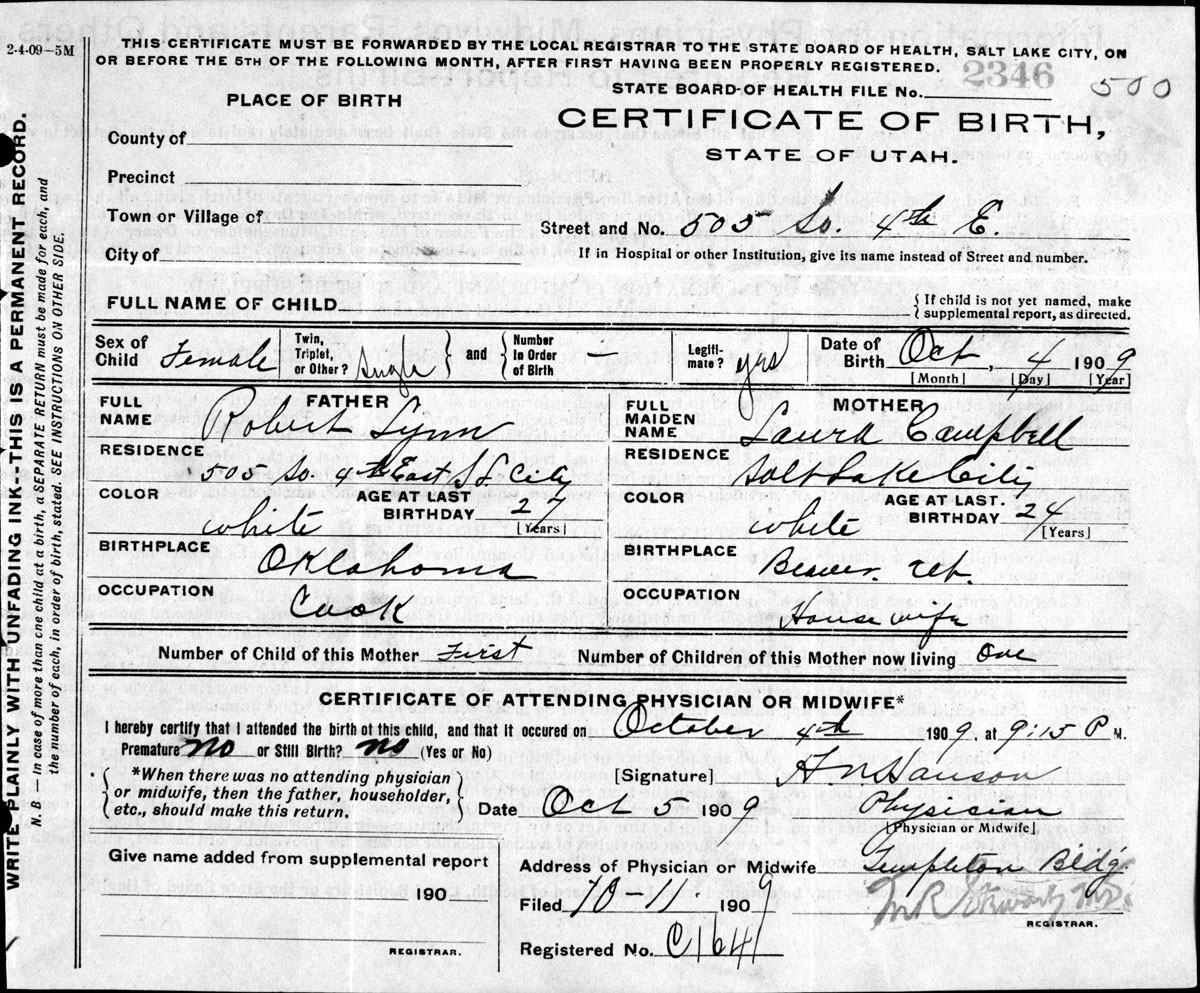 2-4-09—5M
THIS CERTIFICATE MUST BE FORWARDED BY THE LOCAL REGISTRAR TO THE STATE BOARD OF HEALTH, SALT LAKE CITY, ON
OR BEFORE THE 5TH OF THE FOLLOWING MONTH, AFTER FIRST HAVING BEEN PROPERLY REGISTERED.
2346
500
STATE BOARD OF HEALTH FILE No.
PLACE OF BIRTH
CERTIFICATE OF BIRTH,
STATE OF UTAH.
County of
Precinct
Town or Village of
Street and No. 505 So. 4th E.
City of
If in Hospital or other Institution, give its name instead of Street and number.
FULL NAME OF CHILD
{ If child is not yet named, make
supplemental report, as directed.
Sex of Child Female
Twin, Triplet, or Other? Single
and
Number In Order of Birth
Legiti- mate? yes
Date of Birth Oct, 4 1909
[Month] [Day] [Year]
FATHER
FULL NAME Robert Lynn
RESIDENCE
505 So. 4th East S.L. City
COLOR white
AGE AT LAST BIRTHDAY 27 [Years]
BIRTHPLACE
Oklahoma
OCCUPATION
Cook
MOTHER
FULL MAIDEN NAME Laura Campbell
RESIDENCE
Salt Lake City
COLOR white
AGE AT LAST. BIRTHDAY 24 [Years]
BIRTHPLACE
Beaver. Ut.
OCCUPATION
House wife
Number of Child of this Mother First
Number of Children of this Mother now living One
CERTIFICATE OF ATTENDING PHYSICIAN OR MIDWIFE*
I hereby certify that I attended the birth of this child, and that it occured on October 4th 1909. at 9:15 P M.
Premature no or Still Birth? no (Yes or No)
*When there was no attending physician
or midwife, then the father, householder,
etc., should make this return.
[Signature] A N Hanson
Date Oct 5 1909
Physician
[Physician or Midwife]
Give name added from supplemental report
190
REGISTRAR.
Address of Physician or Midwife Templeton Bldg.
Filed 10-11- 1909
REGISTRAR.
Registered No. C1641
WRITE PLAINLY WITH UNFADING INK--THIS IS A PERMANENT RECORD.
N. B.—In case of more than one child at a birth, a SEPARATE RETURN must be made for each, and
the number of each, in order of birth, stated. SEE INSTRUCTIONS ON OTHER SIDE.